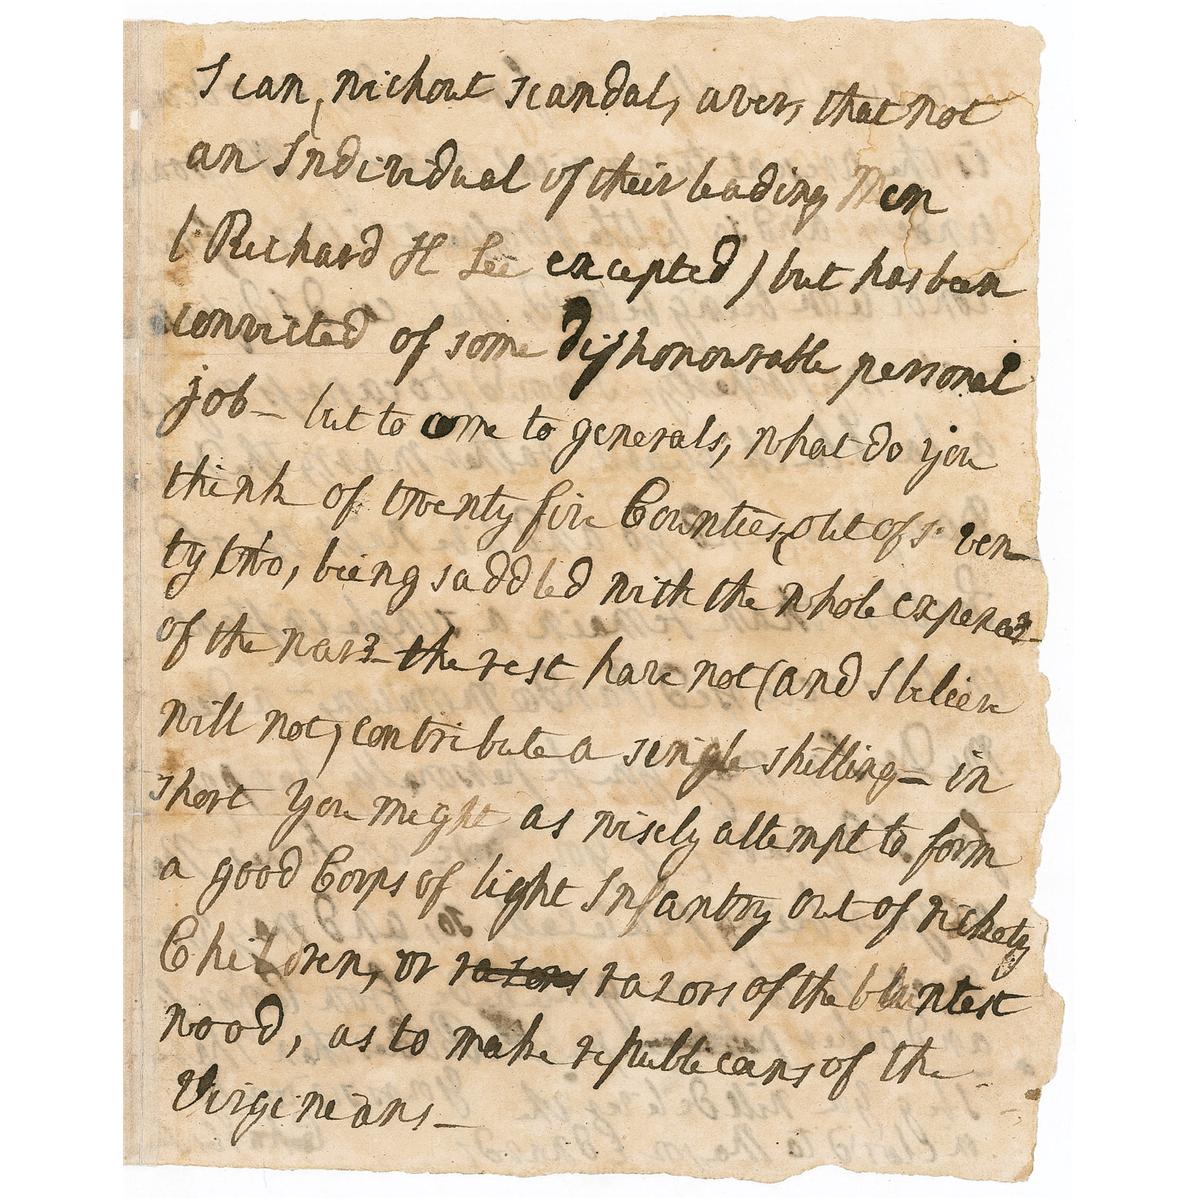 I can, without scandal, aver, that not
an Individual of their leading Men
(Richard H Lee excepted) but has been
convicted of some dishonourable personal
job – but to come to generals, what do you
think of twenty five Counties, out of seven-
ty two, being saddled with the whole expence
of the war – the rest have not (and I believe
will not) contribute a single shilling – in
short you might as wisely attempt to form
a good Corps of light Infantry out of rickety
Children, or razors razors of the bluntest
wood, as to make republicans of the
Virgineans –